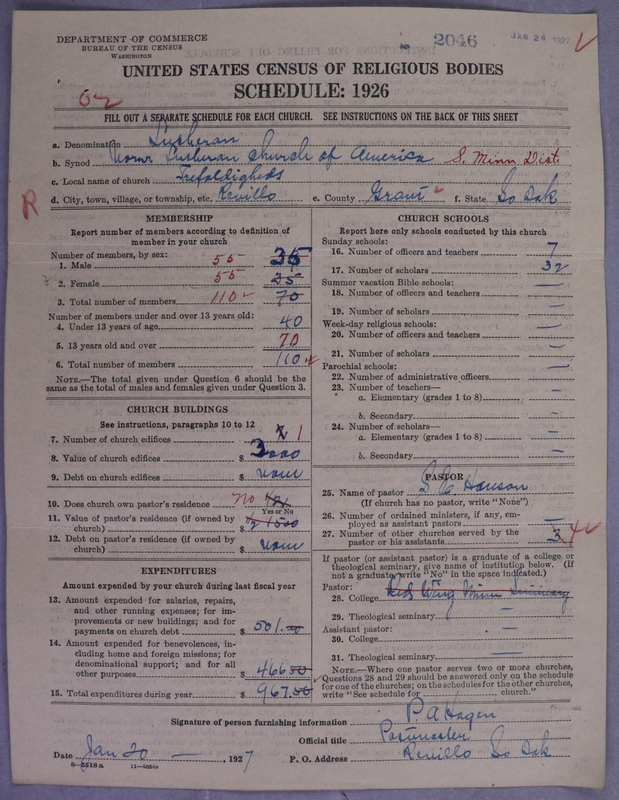 DEPARTMENT OF COMMERCE
BUREAU OF THE CENSUS
WASHINGTON
2046
JAN 24 1927
UNITED STATES CENSUS OF RELIGIOUS BODIES
SCHEDULE: 1926
FILL OUT A SEPARATE SCHEDULE FOR EACH CHURCH. SEE INSTRUCTIONS ON THE BACK OF THIS SHEET
a. Denomination Lutheran
b. Synod Norw Lutheran Church of America S. Minn Dist.
c. Local name of church Trefoldigheds
d. City, town, village, or township, etc. Revillo e. County Grant f. State So Dak
R
MEMBERSHIP
Report number of members according to definition of
member in your church
Number of members, by sex:
1. Male 55 35
2. Female 55 35
3. Total number of members 110 70
Number of members under and over 13 years old:
4. Under 13 years of age 40
5. 13 years old and over 70
6. Total number of members 110
NOTE.—The total given under Question 6 should be
the same as the total of males and females given under Question 3.
CHURCH BUILDINGS
See instructions, paragraphs 10 to 12
7. Number of church edifices 1
8. Value of church edifices $ 3000
9. Debt on church edifices $ none
10. Does church own pastor's residence no
Yes or No
11. Value of pastor's residence (if owned by
church) $ ½ 1500
12. Debt on pastor's residence (if owned by
church) $ none
EXPENDITURES
Amount expended by your church during last fiscal year
13. Amount expended for salaries, repairs,
and other running expenses; for im-
provements or new buildings; and for
payments on church debt $ 501.00
14. Amount expended for benevolences, in-
cluding home and foreign missions; for
denominational support; and for all
other purposes $ 466.00
15. Total expenditures during year $ 967.00
CHURCH SCHOOLS
Report here only schools conducted by this church
Sunday schools:
16. Number of officers and teachers 7
17. Number of scholars 32
Summer vacation Bible schools:
18. Number of officers and teachers —
19. Number of scholars —
Week-day religious schools:
20. Number of officers and teachers —
21. Number of scholars —
Parochial schools:
22. Number of administrative officers —
23. Number of teachers—
a. Elementary (grades 1 to 8) —
b. Secondary —
24. Number of scholars—
a. Elementary (grades 1 to 8) —
b. Secondary —
PASTOR
25. Name of pastor Hanson
(If church has no pastor, write "None")
26. Number of ordained ministers, if any, em-
ployed as assistant pastors —
27. Number of other churches served by the
pastor or his assistants 3
If pastor (or assistant pastor) is a graduate of a college or
theological seminary, give name of institution below. (If
not a graduate, write "No" in the space indicated.)
Pastor:
28. College Red Wing Minn Seminary
29. Theological seminary —
Assistant pastor:
30. College —
31. Theological seminary —
NOTE.—Where one pastor serves two or more churches,
Questions 28 and 29 should be answered only on the schedule
for one of the churches; on the schedules for the other churches,
write "See schedule for church."
Signature of person furnishing information P. A Hagen
Official title Postmaster
Date Jan 20 — , 1927 P. O. Address Revillo So Dak
8—5518a 11—9056a